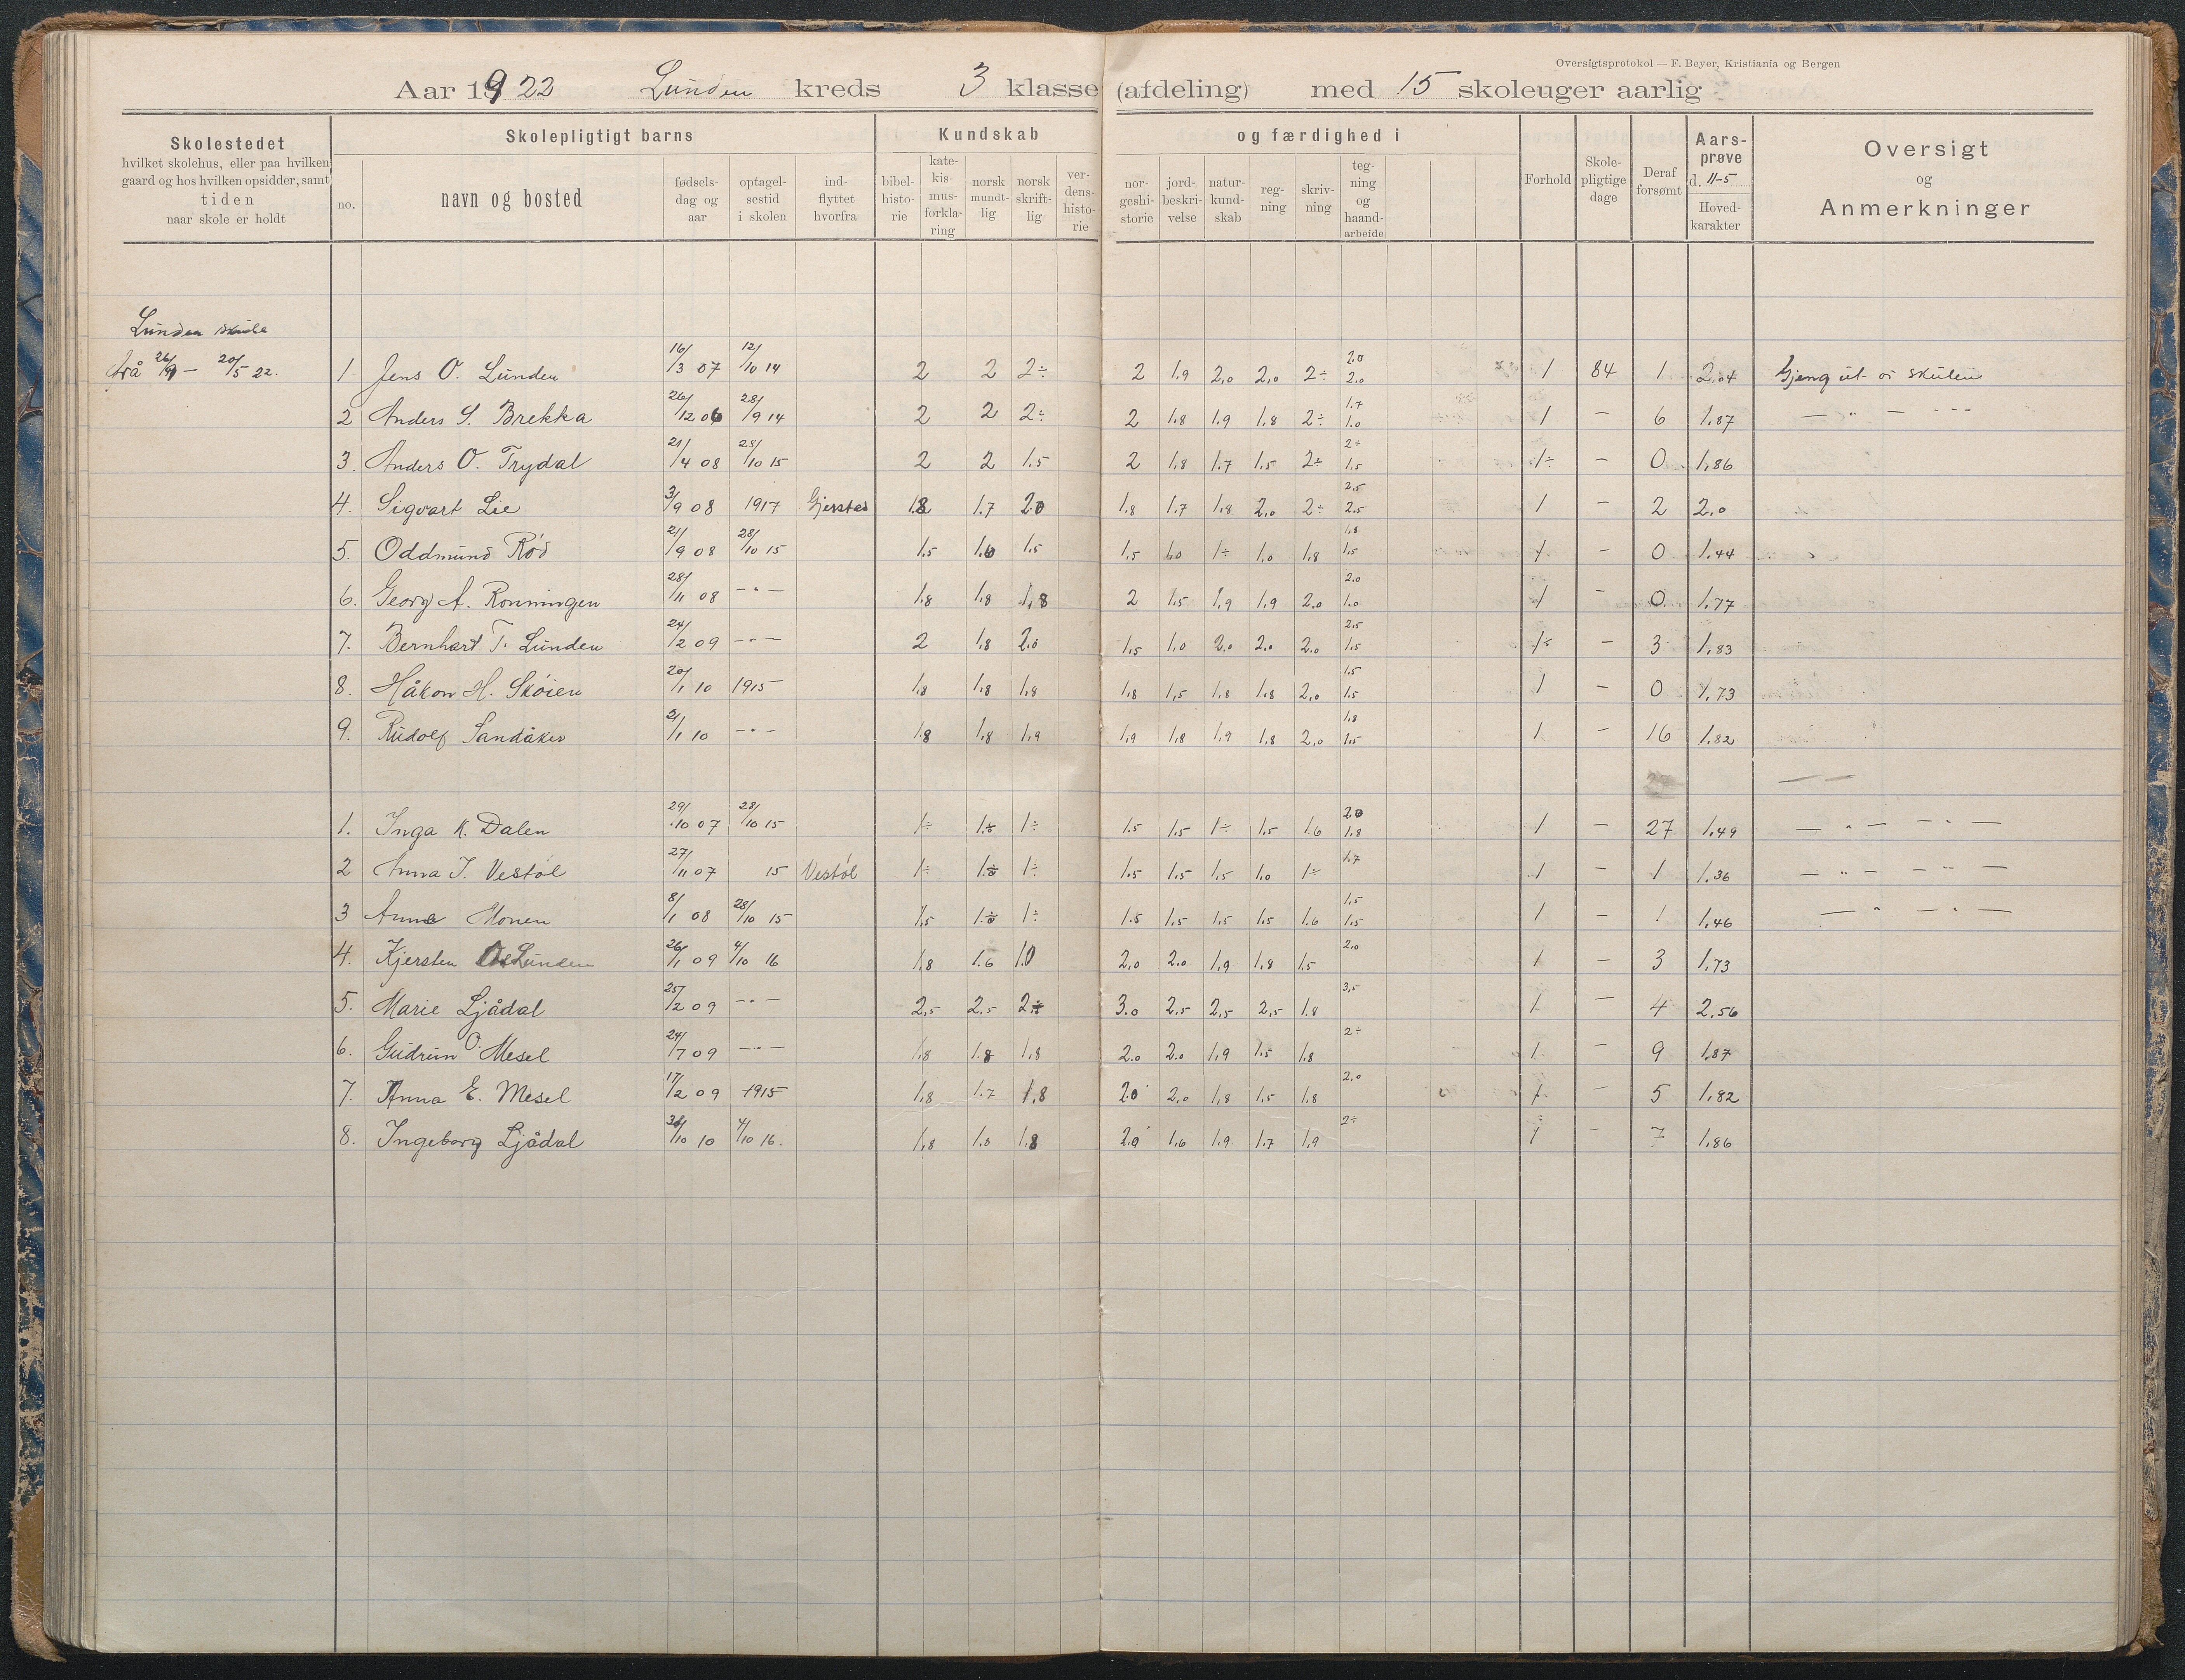 Oversigtsprotokol — F. Beyer, Kristiania og Bergen
Aar 1922 Lunden kreds 3 klasse (afdeling) med 15 skoleuger aarlig
Skolestedet
hvilket skolehus, eller paa hvilken
gaard og hos hvilken opsidder, samt
tiden
naar skole er holdt
Skolepligtigt barns
no.
navn og bosted
fødsels-
dag og
aar
optagel-
sestid
i skolen
ind-
flyttet
hvorfra
Kundskab
bibel-
histo-
rie
kate-
kis-
mus-
forkla-
ring
norsk
mundt-
lig
norsk
skrift-
lig
ver-
dens-
histo-
rie
og færdighed i
nor-
geshi-
storie
jord-
beskri-
velse
natur-
kund-
skab
reg-
ning
skriv-
ning
teg-
ning
og
haand-
arbeide
Forhold
Skole-
pligtige
dage
Deraf
forsømt
Aars-
prøve
d. 11-5
Hoved-
karakter
Oversigt
og
Anmerkninger
Lunden skule
frå 26/9 – 20/5 22.
1 Jens O. Lunden 16/3 07 12/10 14 2 2 2÷ 2 1.9 2.0 2.0 2÷ 2.0 2.0 1 84 1 2.04 Gjeng ut or skulen
2 Anders S. Brekka 26/12 06 28/9 14 2 2 2÷ 2 1.8 1.9 1.8 2÷ 1.7 1.0 1 – 6 1.87 — " — " -
3. Anders O. Trydal 21/4 08 28/10 15 2 2 1.5 2 1.8 1.7 1.5 2÷ 2÷ 1.5 1÷ – 0 1.86
4. Sigvart Lie 3/9 08 1917 Gjerstad 1.8 1.7 2.0 1.8 1.7 1.8 2.0 2÷ 2.5 2.5 1 – 2 2.0
5. Oddmund Rød 21/9 08 28/10 15 1.5 1.6 1.5 1.5 1.0 1÷ 1.0 1.8 1.8 1.5 1 – 0 1.44
6. Georg A. Rønningen 28/11 08 -"- 1.8 1.8 1.8 2 1.5 1.9 1.9 2.0 2.0 1.0 1 – 0 1.77
7. Bernhart T. Lunden 24/2 09 -"- 2 1.8 2.0 1.5 1.0 2.0 2.0 2.0 2.5 1.5 1÷ – 3 1.83
8. Håkon H. Skøien 20/1 10 1915 1.8 1.8 1.8 1.8 1.5 1.8 1.8 2.0 1.5 1.5 1 – 0 1.73
9. Rudolf Sandåker 2/1 10 -"- 1.8 1.8 1.9 1.9 1.8 1.9 1.8 2.0 1.8 1.5 1 – 16 1.82
1. Inga K. Dalen 29/10 07 28/10 15 1÷ 1÷ 1÷ 1.5 1.5 1÷ 1.5 1.6 2.0 1.8 1 – 27 1.49 — " — " —
2 Anna J. Vestøl 27/11 07 15 Vestøl 1÷ 1÷ 1÷ 1.5 1.5 1.5 1.0 1÷ 1.7 1 – 1 1.36 — " — " —
3 Anne Monen 8/1 08 28/10 15 1.5 1÷ 1÷ 1.5 1.5 1.5 1.5 1.6 1.5 1.5 1 – 1 1.46 — " — " —
4. Kjersten Lunden 26/1 09 4/10 16 1.8 1.6 1.0 2.0 2.0 1.9 1.8 1.5 2.0 1 – 3 1.73
5. Marie Ljådal 25/2 09 -"- 2.5 2.5 2÷ 3.0 2.5 2.5 2.5 1.8 3.5 1 – 4 2.56
6. Gudrun O. Mesel 24/7 09 -"- 1.8 1.8 1.8 2.0 2.0 1.9 1.5 1.8 2÷ 1 – 9 1.87
7. Anna E. Mesel 17/2 09 1915 1.8 1.7 1.8 2.0 2.0 1.8 1.5 1.8 2.0 1 – 5 1.82
8. Ingeborg Ljådal /10 10 4/10 16. 1.8 1.8 1.8 2.0 1.6 1.9 1.7 1.9 2÷ 1 – 7 1.86